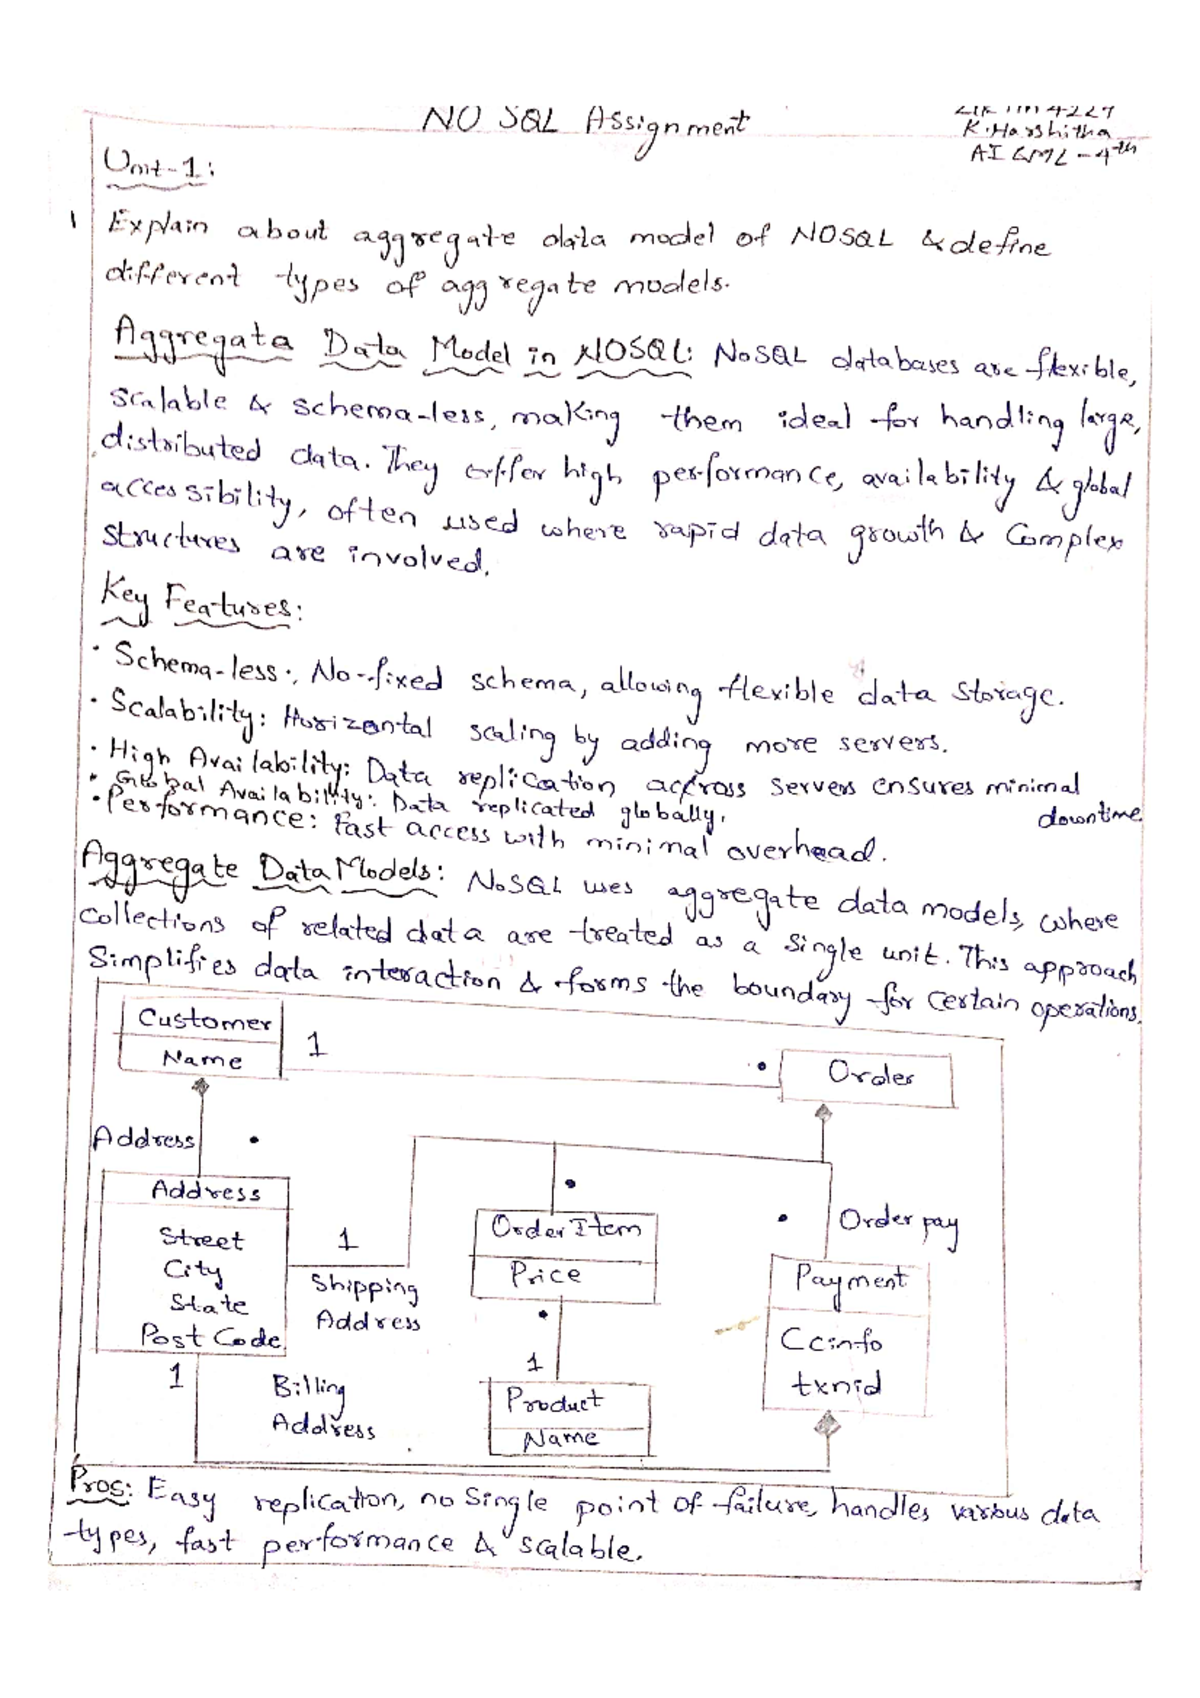 NO SQL Assignment
K. Harshitha
AI &ML - 4th
Unit-1:
1 Explain about aggregate data model of NOSQL & define
different types of aggregate models.
Aggregata Data Model in NOSQL: NoSQL databases are flexible,
scalable & schema-less, making them ideal for handling large,
distributed data. They offer high performance, availability & global
accessibility, often used where rapid data growth & Complex
structures are involved.
Key Features:
• Schema-less:, No-fixed schema, allowing flexible data storage.
• Scalability: Horizontal scaling by adding more servers.
• High Availability: Data replication across servers ensures minimal
downtime
• Global Availability: Data replicated globally.
• Performance: Fast access with minimal overhead.
Aggregate Data Models: NoSQL uses aggregate data models, where
collections of related data are treated as a single unit. This approach
Simplifies data interaction & forms the boundary for certain operations.
Customer
Name
1
Order
Address
Address
Street
City
State
Post Code
1
Shipping
Address
Order Item
Price
Order pay
Payment
Ccinfo
txnid
1
Billing
Address
1
Product
Name
Pros: Easy replication, no single point of failure, handles various data
types, fast performance & scalable.